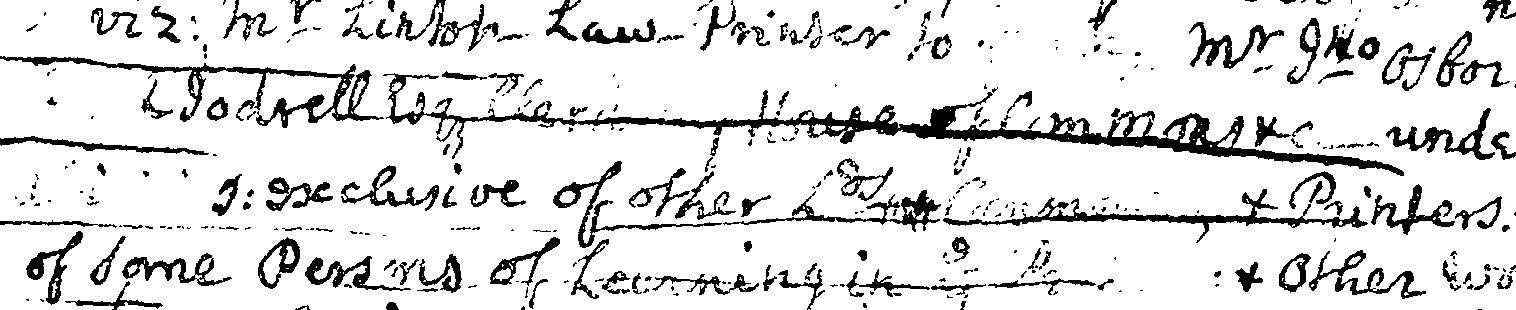 viz: Mr Lintop Law Printer to Mr Jno Osbor
& Jodrell Esqr Clerk House of Commons &c unde
J: exclusive of other Lds & Commons, & Printers.
of some Persons of Learning in ye & Other Wo